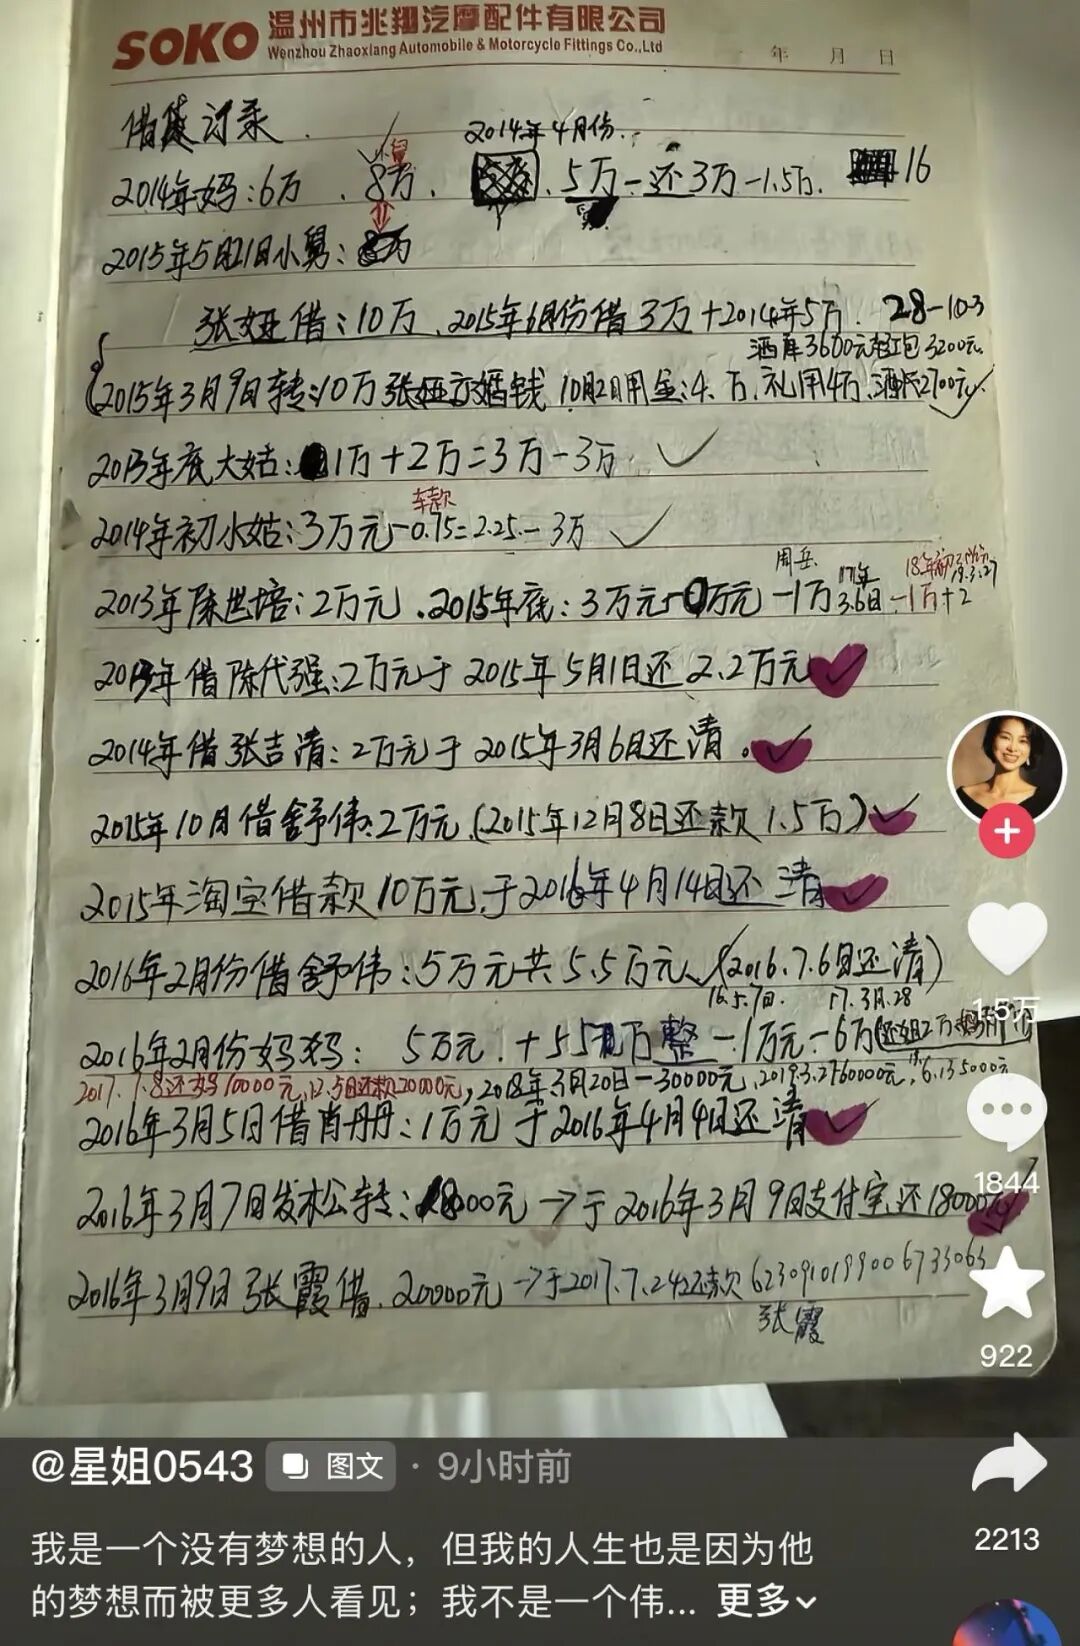 SOKO 温州市兆翔汽摩配件有限公司
Wenzhou Zhaoxiang Automobile & Motorcycle Fittings Co.,Ltd
年 月 日
借贷记录
2014年4月份.
2014年妈:6万 . 8万. 5万-还3万-1.5万. 16
小舅
2015年5月21日小舅:
张娅借:10万、2015年6月份借3万+2014年5万. 28-10-3
酒席3600元 红包3200元
2015年3月9日转:10万张娅 婚钱 10月2日用金:4万.礼用4万.酒 2700元
2013年底大姑:1万+2万=3万-3万
车款
2014年初小姑:3万元-0.75=2.25-3万
周岳
2013年陈世培:2万元.2015年底:3万元-0万元-1万 17年3.6日 -1万+2
18年初 19.3.27
2013年借陈代强:2万元于2015年5月1日还2.2万元
2014年借张吉清:2万元于2015年3月6日还清.
2015年10月借舒伟:2万元(2015年12月8日还款1.5万)
2015年淘宝借款10万元于2016年4月14日还清
2016年2月份借舒伟:5万元共5.5万元(2016.7.6日还清)
16.5.7日. 17.3月.28
2016年2月份妈妈: 5万元.+5 万整-1万元-6万
2017.7.8还妈10000元,12.5日还款20000元,2018年3月20日-30000元,2019.3.27 60000元,
2016年3月5日借肖丹丹:1万元于2016年4月4日还清
2016年3月7日发松转:18000元→于2016年3月9日支付宝还18000元
2016年3月9日张霞借.20000元→于2017.7.24还款
张霞
1.5万
1844
922
2213
@星姐0543 图文 · 9小时前
我是一个没有梦想的人，但我的人生也是因为他
的梦想而被更多人看见；我不是一个伟... 更多